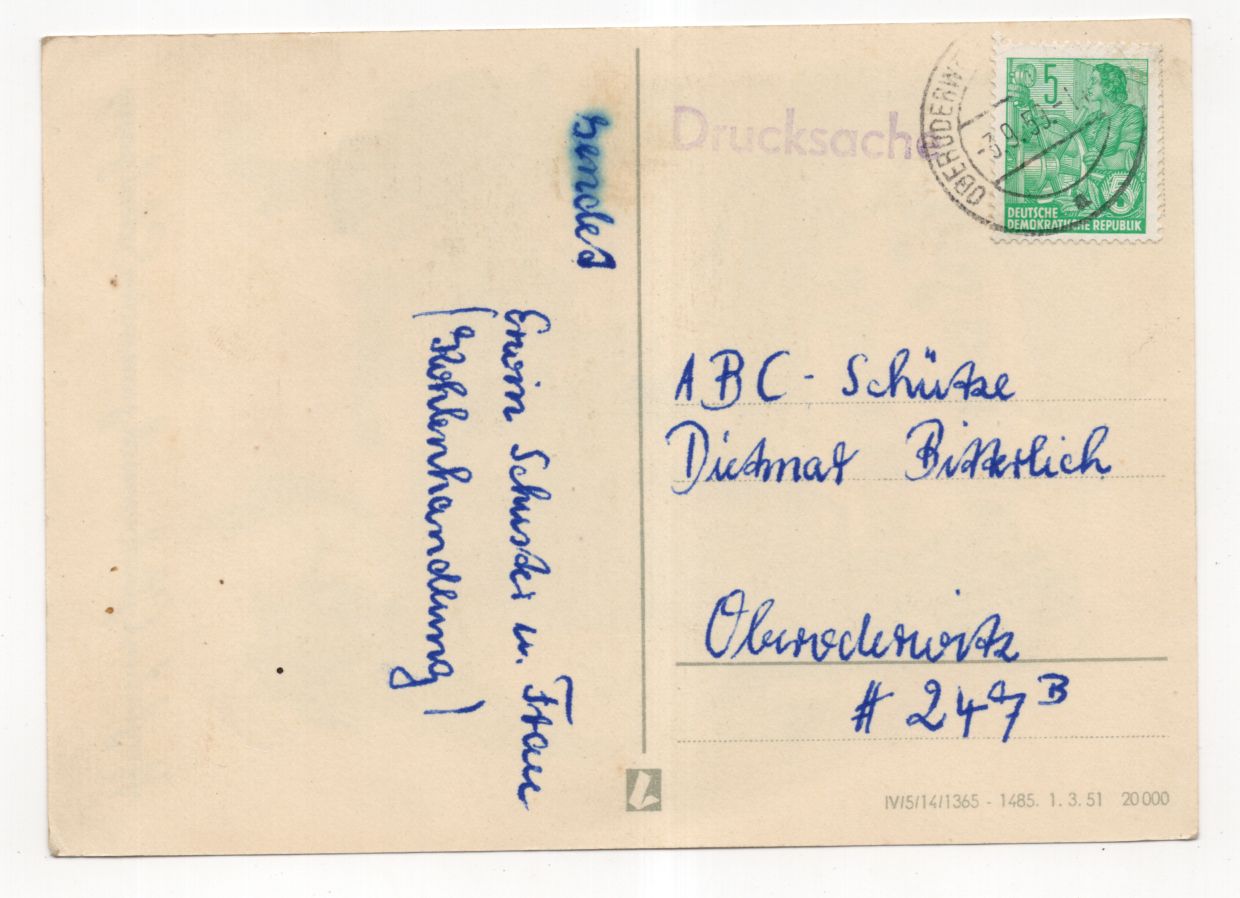 sendet
Erwin Schuster u. Frau
(Kohlenhandlung)
Drucksache
OBERODERW
-3.9.59.-
5
5
DEUTSCHE
DEMOKRATISCHE REPUBLIK
ABC-Schütze
Dietmar Bitterlich
Oberoderwitz
# 247 B
IV/5/14/1365 - 1485. 1. 3. 51 20 000